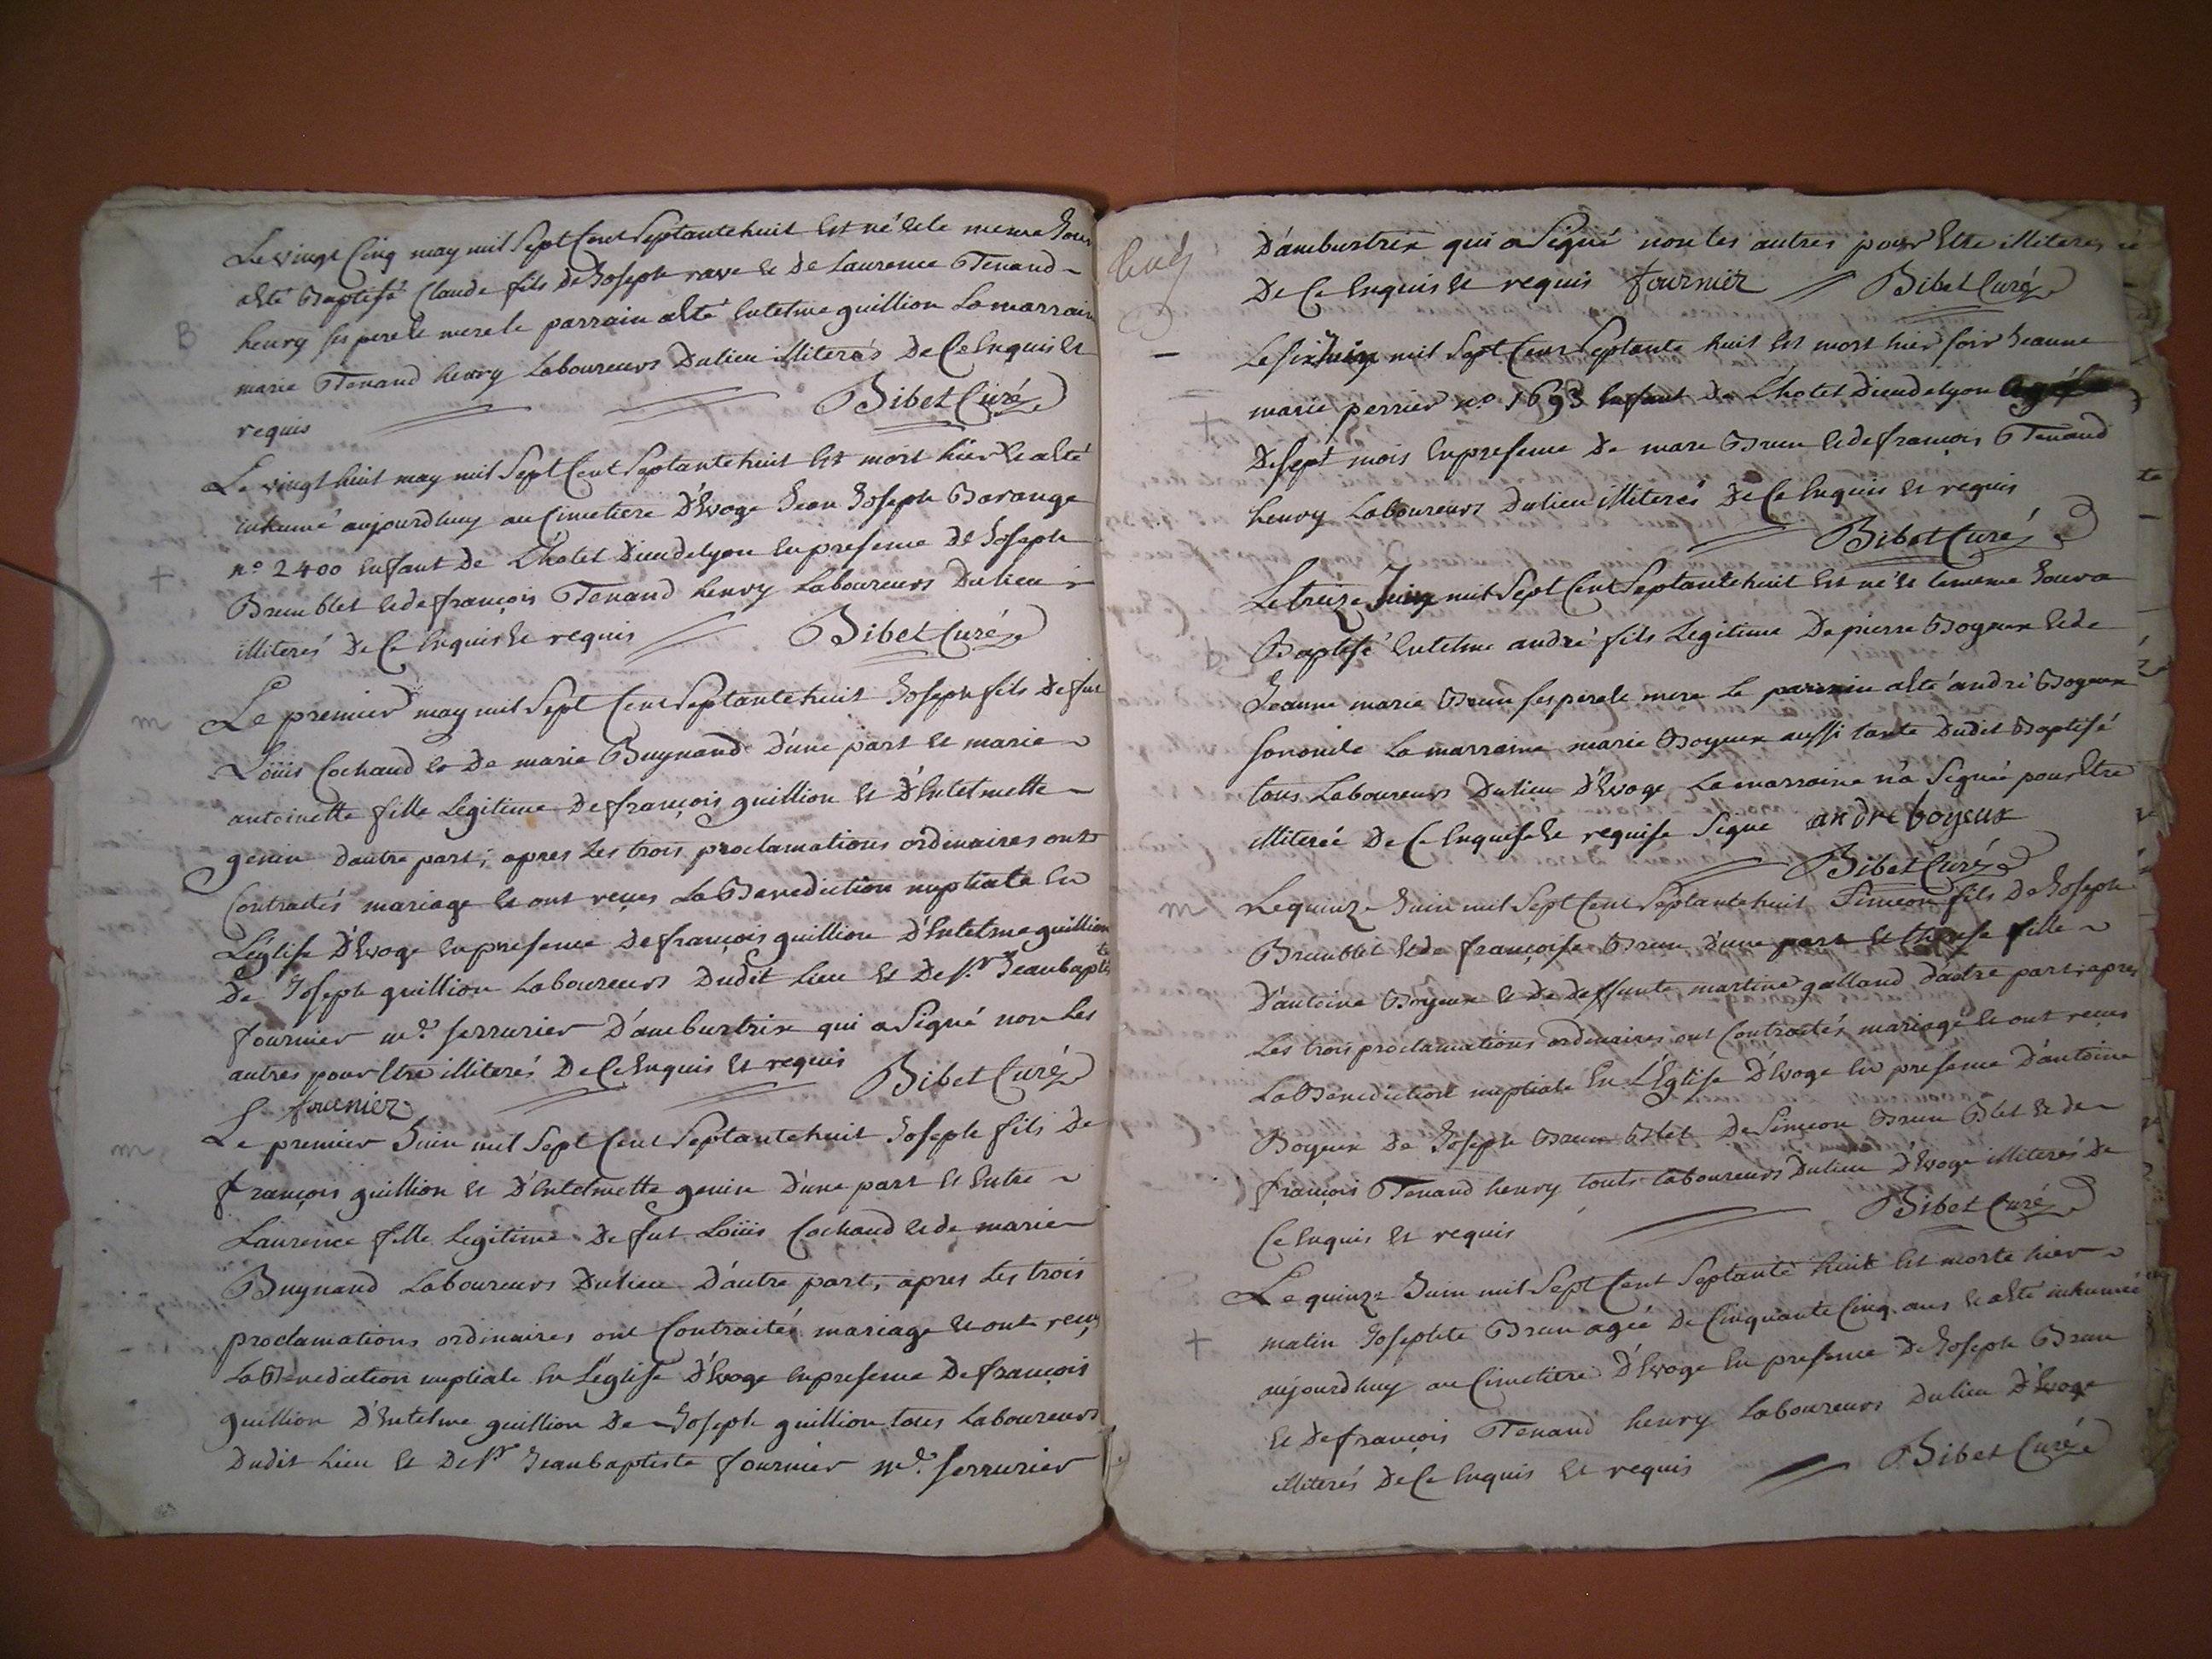 Le vingt Cinq may mil Sept Cent Septante huit Est né et le meme Jour
B
a été Baptisé Claude fils de Joseph rave et de Laurence Tenand
henry ses pere et mere le parrain a été Entelme guillion La marraine
marie Tenand henry Laboureurs Du lieu illiterés De Ce Enquis et
requis Bibet Curé
Le vingt huit may mil Sept Cent Septante huit Est mort hier et a été
inhumé aujourdhuy au Cimetiere D'Evoge Jean Joseph Barange
+
n° 2400 Enfant De L'hotel Dieu de lyon En presence De Joseph
Brun blet et de françois Tenand henry Laboureurs Du lieu
illiterés De Ce Enquis et requis Bibet Curé
m
Le premier may mil Sept Cent Septante huit Joseph fils De fut
Loüis Cochaud et De marie Buynand D'une part et marie
antoinette fille Legitime De françois guillion et D'Entelmette
genin d'autre part, apres Les trois proclamations ordinaires ont
Contractés mariage et ont reçus La Benediction nuptiale En
L'église D'Evoge En presence De françois guillion D'Entelme guillion
De Joseph guillion Laboureurs Dudit Lieu et De Sr Jean baptte
fournier md. serrurier D'amburtrix qui a Signé non Les
autres pour Etre illiterés De Ce Enquis et requis Bibet Curé
f fournier
m
Le premier Juin mil Sept Cent Septante huit Joseph fils De
françois guillion et D'Entelmette genin D'une part et Entre
Laurence fille Legitime De fut Loüis Cochaud et de marie
Buynand Laboureurs Du lieu D'autre part, apres Les trois
proclamations ordinaires ont Contraités mariage et ont reçus
La Benediction nuptiale En L'église D'Evoge En presence De françois
guillion D'Entelme guillion De Joseph guillion tous Laboureurs
Dudit Lieu et De Sr Jean baptiste fournier md. serrurier
D'amburtrix qui a Signé non Les autres pour Etre illiteres
De Ce Enquis et requis fournier Bibet Curé
Le six Juin mil Sept Cent Septante huit Est mort hier soir Jeanne
+
marie perrier n° 1693 Enfant De L'hotel Dieu de lyon
De sept mois En presence De marc Brun et de françois Tenand
henry Laboureurs Du lieu illiterés De Ce Enquis et requis
Bibet Curé
Le treize Juin mil Sept Cent Septante huit Est né et le meme Jour a
B
Baptisé Entelme andré fils Legitime De pierre Boyeux et de
Jeanne marie Brun ses pere et mere Le parrain a été andré Boyeux
son oncle La marraine marie Boyeux aussi tante Dudit Baptisé
tous Laboureurs Du lieu D'Evoge La marraine n'a Signée pour Etre
illiterée De Ce Enquise et requise Signe andre boyeux
Bibet Curé
m
Le quinze Juin mil Sept Cent Septante huit Simeon fils De Joseph
Brun blet et de françoise Brun D'une part et therese fille
D'antoine Boyeux et De Deffunte martine galland d'autre part, apres
Les trois proclamations ordinaires ont Contractés mariage et ont reçus
La Benediction nuptiale En L'Eglise D'Evoge En presence D'antoine
Boyeux De Joseph Brun Blet De Simeon Brun Blet et de
françois Tenand henry touts Laboureurs Du lieu D'Evoge illiterés De
Ce Enquis et requis Bibet Curé
Le quinze Juin mil Sept Cent Septante huit Est morte hier
+
matin Josephte Brun agée De Cinquante Cinq ans et a été inhumée
aujourdhuy au Cimetiere D'Evoge En presence De Joseph Brun
et De françois Tenand henry Laboureurs Du lieu D'Evoge
illiterés De Ce Enquis et requis Bibet Curé